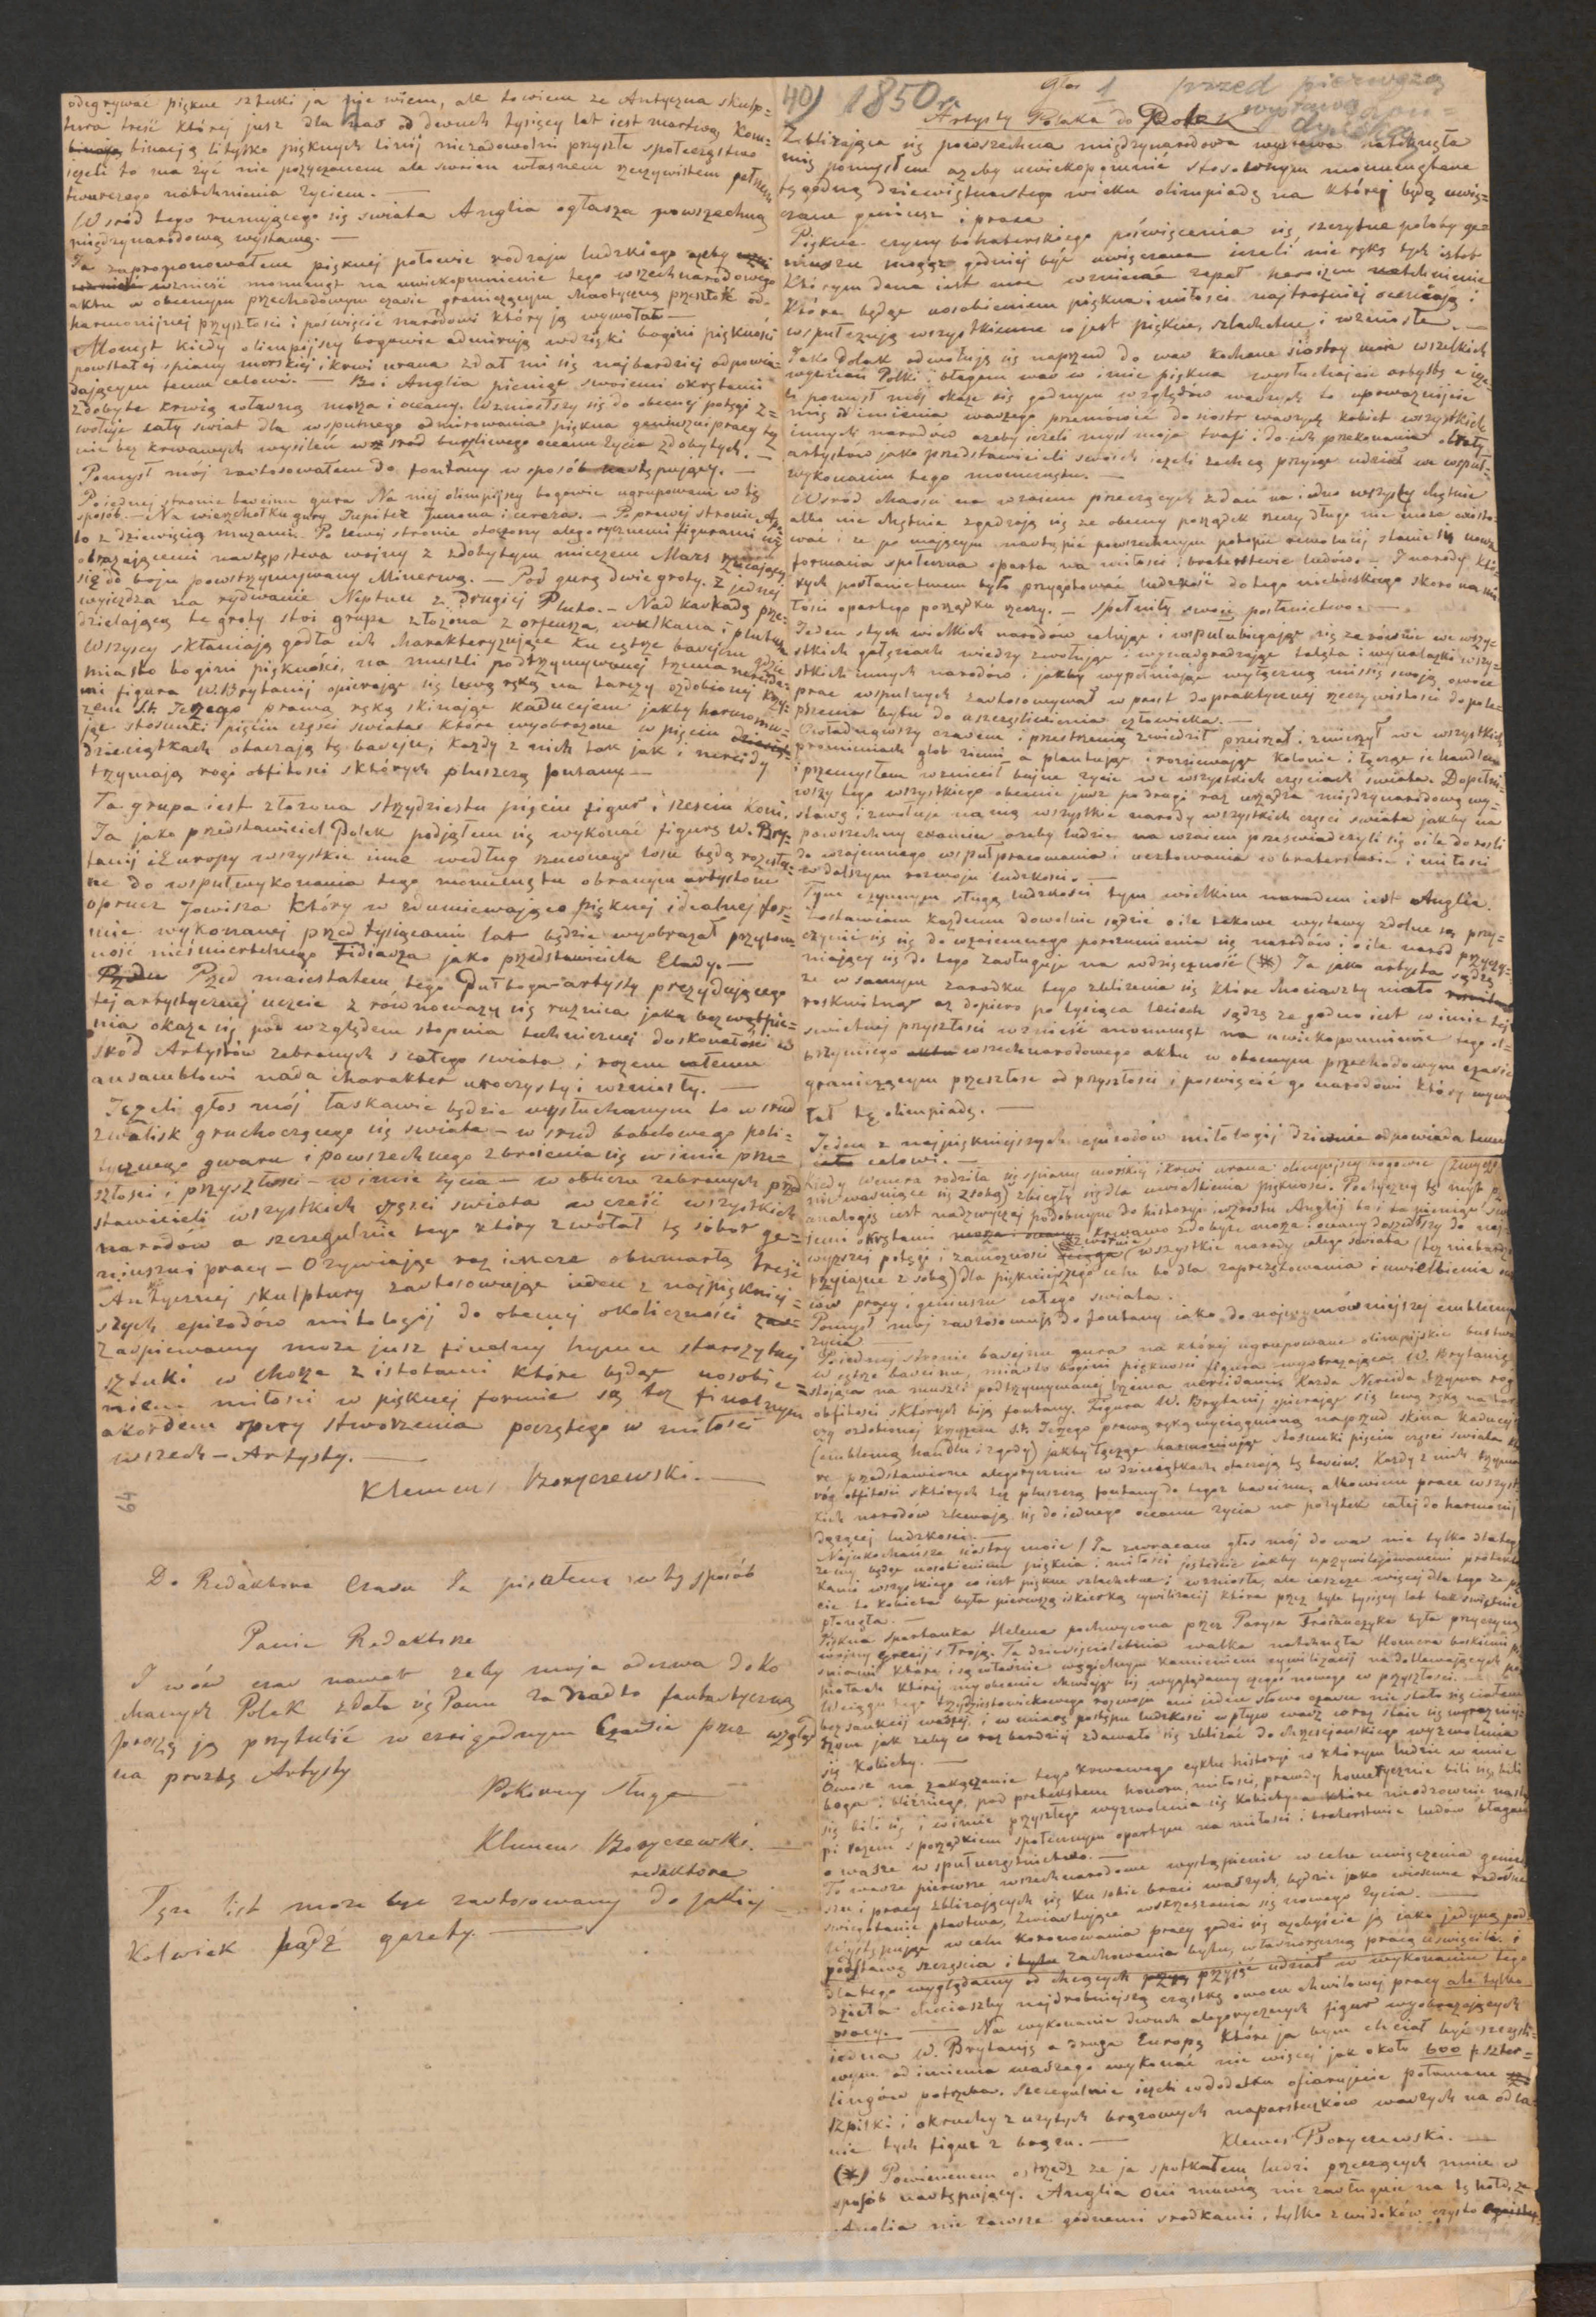 odegrywać piękne sztuki ja nie wiem, ale to wiem że Antyczna skulp=
tura treść której jusz dla nas od dwuch tysięcy lat iest martwą kom=
binacją li tylko pięknych linij niezadowolni przyszłe społeczęstwo
ieżeli to ma żyć nie pożyczonem ale swoiem własnem rzeczywistem pełnem
twurczego natchnienia życiem. —
Wsród tego rumującego się swiata Anglia ogłasza powszechną
międzynarodową wystawę. —
Ja zaproponowałem pięknej połowie rodzaju ludzkiego ażeby
wznieść monument na uwiekopomnienie tego wszechnarodowego
aktu w obecnym przechodowym czasie graniczącym Mastyczną przeszłość od
harmonijnej przyszłości i poświęcić narodowi który ją wywołał —
Moment kiedy olimpijscy bogowie admirują wdzięki bogini piękności
powstałej spiany morskiej i krwi urana zdał mi się najbardziej odpowia=
dającym temu celowi. — Bo i Anglia pieniąc swoiemi okrętami
zdobyte krwią własną moża i oceany. Wzniosłszy się do obecnej potęgi z=
wołuje cały swiat dla wspulnego admirowania piękna geniuszu i pracy ty
nie bez krwawych wysileń wśród burzliwego oceanu życia zdobytych. —
Pomysł mój zastosowałem do fontany w sposób następujący. —
Po iednej stronie baseinu gura Na niej olimpijscy bogowie ugrupowani w tę
sposób. — Na wierzchołku gury Jupiter Junona i cereza. — P prawej stronie Apo
lo z dziewięcią muzami. Po lewej stronie otoczony alegorycznemi figurami wy
obrażającemi następstwa wojny z zdobytym mieczem Mars rzucający
się do boju powstrzymywany Minerwą. — Pod gurą dwie groty. Z jednej
wyieżdza na rydwanie Neptun z drugiej Pluto. — Nad kaskadą prze=
dzielającą te groty stoi grupa złożona z orfeusza, wulkana i plutusa
Wszyscy skłaniają godła ich charakteryzujące ku cętrze baseinu gdzie
miasto bogini piękności, na muszli podtrzymywanej trzema nereida=
mi figura W. Brytanij opierając się lewą ręką na tarczy ozdobionej krzy=
żem St. Jeżego prawą ręką skinając kaduceiem jakby harmoniu=
jąc stosunki pięciu części swiatas które wyobrażone w pięciu
dzieciątkach otaczają tę baseju; każdy z nich tak jak i nereidy
trzymają rogi obfitości sktórych pluszczą fontany —
Ta grupa iest złożona strzydziestu pięciu figur i sześciu koni.
Ja jako przedstawiciel Polek podjąłem się wykonać figurę W. Bry=
tanij i Europy wszystkie inne według rzuconego losu będą rozesła=
ne do wspułwykonania tego monumentu obranym artystom
oprucz Jowisza który w zdumiewająco pięknej idealnej for=
mie wykonanej przed tysiącami lat będzie wyobrażał przytom=
ność nieśmiertelnego Fidiasza jako przedstawiciela Elady. —
Przed maiestatem, tego Pułboga-artysty prezydującego
tej artystycznej uczcie z równoważy się ruznica jaka bez wątpie=
nia okaże się pod względem stopnia technicznej doskonałości w
śród Artystów zebranych s całego swiata i razem całemu
ansamblowi nada charakter uroczysty i wzniosły. —
Jeżeli głos mój łaskawie będzie wysłuchanym to wsrud
zwalisk gruchoczącego się swiata — wsrud babelowego poli=
tycznego gwaru i powszechnego zbroienia się w imie prze=
szłości i przyszłości — w imie życia — w obliczu zebranych przed
stawicieli wszystkich części swiata w cześć wszystkich
narodów a szczegulnie tego który zwołał tę sobor ge=
niuszu i pracy — Ozywiając raz ieszcze obumarłą treść
Antycznej skulptury zastosowując ieden z najpięknij=
szych epizodów mitologij do obecnej okoliczności
Zaspiewamy może jusz finalny hymn starożytnej
sztuki w chorze z istotami które będąc uosobie=
niem miłości w pięknej formie są też finalnym
akordem opery stworzenia poczętego w miłości
wszech-Artysty. —
Klemens Boryczewski. —
64
Do Redaktora Czasu Ja pisałem w tę sposób
Panie Redaktorze
I wów czas nawet żeby moja odezwa do ko
chanych Polek zdała się Panu za nadto fantastyczną
proszę ją przytulić w czci godnym Czasie przez wzgląd
na prozbę Artysty
Pokorny sługa —
Klemens Boryczewski. —
redaktora
Tęn list może być zastosowany do jakiej
kolwiek bądź gazety. —
40) 1850 r.
Głos 1 przed pierwszą
wystawą
Artysty Polaka do Polek
Zbliżająca się powszechna międzynarodowa wystawa natchnęła
mię pomysłem ażeby uwiekopomnić stosownym monumentem
tę godną dziewiętnastego wieku olimpiadę na której będą uwię=
czane geniusz i praca
Piękne czyny bohaterskiego poświęcenia się, szczytne poloty ge=
niuszu mogąż godniej być uwięczane ieżeli nie ręką tych istot
Którym dana iest moc wzniecać zapał heroizm natchnienie
Które będąc uosobieniem piękna i miłości najtrafniej oceniają i
wspułczują wszystkiemu co jest piękne, szlachetne i wzniosłe. —
Jako Polak odwołuję się naprzud do was kochane siostry moie wszelkich
wyznań Polki; błagam was w imie piękna wysłuchajcie artystę a ieże=
li pomysł mój okaże się godnym względów waszych to upoważnijcie
mię w imieniu waszego przemówić do siostr waszych kobiet wszystkich
innych narodów ażeby ieżeli myśl moja trafi i do ich przekonania obrały
artystów jako przedstawicieli swoich ieżeli zechcą przyjąć udział we wspuł=
wykonaniu tego monumentu. —
Wsród chaosu na wzaiem przeczących zdań na iedno wszyscy chętnie
albo nie chętnie zgadzają się że obecny porządek rzeczy długo nie może existo=
wać i że po mającym nastąpić powszechnym potopie rewolucij stanie się nowa
formacia społeczna oparta na miłości i braterstwie ludów. — I narody któ=
rych posłanictwem było przygotować ludzkość do tego niebieskiego skoro na mi
łości opartego porządku rzeczy. — spełniły swoię posłanictwo. —
Jeden stych wielkich narodów celując i wspulubiegając się zarównie we wszy=
stkich gałęziach wiedzy zwołując i wynadgradzając talęta i wynalazki wszy=
stkich innych narodów i jakby wypełniając wyłączną missię swoją owoce
prac wspulnych zastosowywał w prost do praktycznej rzeczywistości do pole=
pszenia bytu do uszczęśliwienia człowieka. —
Owładnąwszy czasem i przestrzenią zwiedził przeirzał i zmierzył we wszystkich
promieniach glob ziemi a plantując i rozsiewając kolonie i łącząc ie handlem
i przemysłem wzniecił bujne życie we wszystkich częściach swiata. Dopełni=
wszy tego wszystkiego obecnie jusz po drugi raz urządza międzynarodową wy=
stawę i zwołuje na nią wszystkie narody wszystkich części swiata jakby na
powszechny examin ażeby ludzie na wzaiem przeświadczyli się o ile dorośli
do wzajemnego wspułpracowania i ucztowania w braterstwie i miłości
w dalszym rozwoju ludzkości. —
Tym czynnym sługą ludzkości tym wielkim narodem iest Anglia.
Zostawiam każdemu dowolnie sądzić o ile takowe wystawy zdolne są przy=
czynić się się do wzaiemnego porozumienia się narodów i o ile naród przyczy=
niający się do tego zasługuje na wdzięczność (*) Ja jako artysta sądzę
że w samym zarodku tego zbliżenia się które chociaszby miało
roskwitnąć aż dopiero po tysiąca leciech sądzę że godno iest w imie tej
swietnej przyszłości wznieść monument na uwiekopomnienie tego ol=
brzymiego wszechnarodowego aktu w obecnym przechodowym czasie
graniczącym przeszłość od przyszłości i poswięcić go narodowi który wywo
łał tę olimpiadę. —
Jeden z najpiękniejszych epizodów mitologij dziwnie odpowiada temu
celowi. —
Kiedy Wenera rodziła się spiany morskiej i krwi urana olimpijscy bogowie (zwykle
nie waśniące się z sobą) zbiegły się dla uwielbienia piękności. Poetyczny tę myt p
analogią iest nadzwyczaj podobnym do historyi wzrostu Anglij bo i ta pieniąc swo
iemi okrętami krwawo zdobyte moża i oceany doszedłszy do naj=
wyższej potęgi i zamożności zwołuie (wszystkie narody całego swiata (też niebardzo
przyiazne z sobą) dla piękniejszego celu bo dla zaprezętowania i uwielbienia owo
ców pracy i geniuszu całego swiata.
Pomysł mój zastosowuję do fontany jako do najwymówniejszej emblemy
życia
Po iednej stronie baseinu gura na której ugrupowane olimpijskie bustwa
w cętrze baseinu, miasto bogini piękności figura wyobrażająca W. Brytanię
stojąca na muszli podtrzymywanej trzema nereidami. Każda Nereida trzyma róg
obfitości sktórych biją fontany. Figura W. Brytanij opierając się lewą ręką na tar
czy ozdobionej krzyżem St. Jeżego prawą ręką wyciągnioną naprzud skina kaducej
(emblemą handlu i zgody) jakby łącząc harmoniując stosunki pięciu części swiata kt
re przedstawione alegorycznie w dzieciątkach otaczają tę basein. Każdy z nich trzyma
róg obfitości sktórych też pluszczą fontany do tegoż baseinu, albowiem prace wszyst
kich narodów zlewają się do iednego oceanu życia na pożytek całej do harmonij
dążącej ludzkości. —
Najukochańsze siostry moie! Ja zwracam głos mój do was nie tylko dlatego
że wy będąc uosobieniem piękna i miłości jesteście jakby uprzywilejowanemi protekto
kami wszystkiego co iest piękne szlachetne i wzniosłe, ale ieszcze więcej dla tego że prze
cie to kobieta była pierwszą iskierką cywilizacij która przez tyle tysięcy lat tak swietnie
płonęła. —
Piękna Spartanka Helena pochwycona przez Parysa Trojańczyka była przyczyną
wojny grecij s Troją. Ta dziewięcioletnia walka natchnęła Homera boskiemi p
sniami które i są właśnie węgielnym kamieniem cywilizacij na dotlewających po
piołach której my obecnie chwieąc się wyglądamy czegoś nowego w przyszłości.
Wciągu tego trzydziestowiekowego rozwoju ani jedno słowo czasu nie stało się ciałem
bez sankcij waszej, i w miarę postępu ludzkości wpływ wasz coraz staie się wyraznij=
szym jak żeby co raz bardziej zdawało się zbliżać do chrześcijańskiego wyzwolenia
się Kobiety. —
Otwoż na zakączenie tego krwawego cyklu historyi w którym ludzie w imie
boga i bliźniego, pod pretekstem honoru, miłości, prawdy homerycznie bili się, bili
się bili się i w imie przyszłego wyzwolenia się kobiety a które nieodzownie nastę
pi razem sporządkiem społecznym opartym na miłości i braterstwie ludów błagam
o wasze wspułuczęstnictwo. —
To wasze pierwsze wszechnarodowe wystąpienie w celu uwięczenia geniu
szu i pracy zbliżających się ku sobie braci waszych, będzie jako wiosenne radośne
swiegotanie ptastwa, zwiastujące wskrzeszenia się nowego życia. —
Występując w celu koronowania pracy godzi się ażebyście ją jako jedyną pod=
podstawę szczęścia i zachowania bytu, własnoręczną pracą uswięcili. i
dla tego wyglądamy od chcących przyjąć udział w wykonaniu tego
dzieła chociaszby najdrobniejszą cząstkę owocu chwilowej pracy ale tylko
pracy. — Na wykonanie dwuch alegorycznych figur wyobrażających
iedna W. Brytanię a druga Europę które ja bym chciał być szczęśli=
wym od imienia waszego wykonać nie więcej jak około 600 f. szter=
lingów potrzeba. Szczegulnie ieżeli w dodatku ofiarujecie połamane
szpilki i okruchy z uzytych brązowych naparstuszków waszych na odla=
nie tych figur z brązu. —
Klemens Boryczewski. —
(*) Powinienem ostrzedz że ja spotkałem ludzi przeczących mnie w
sposób następujący. Anglia oni muwią nie zasługuie na tę hołd, że
Anglia nie zawsze godnemi srodkami, tylko z widoków czysto